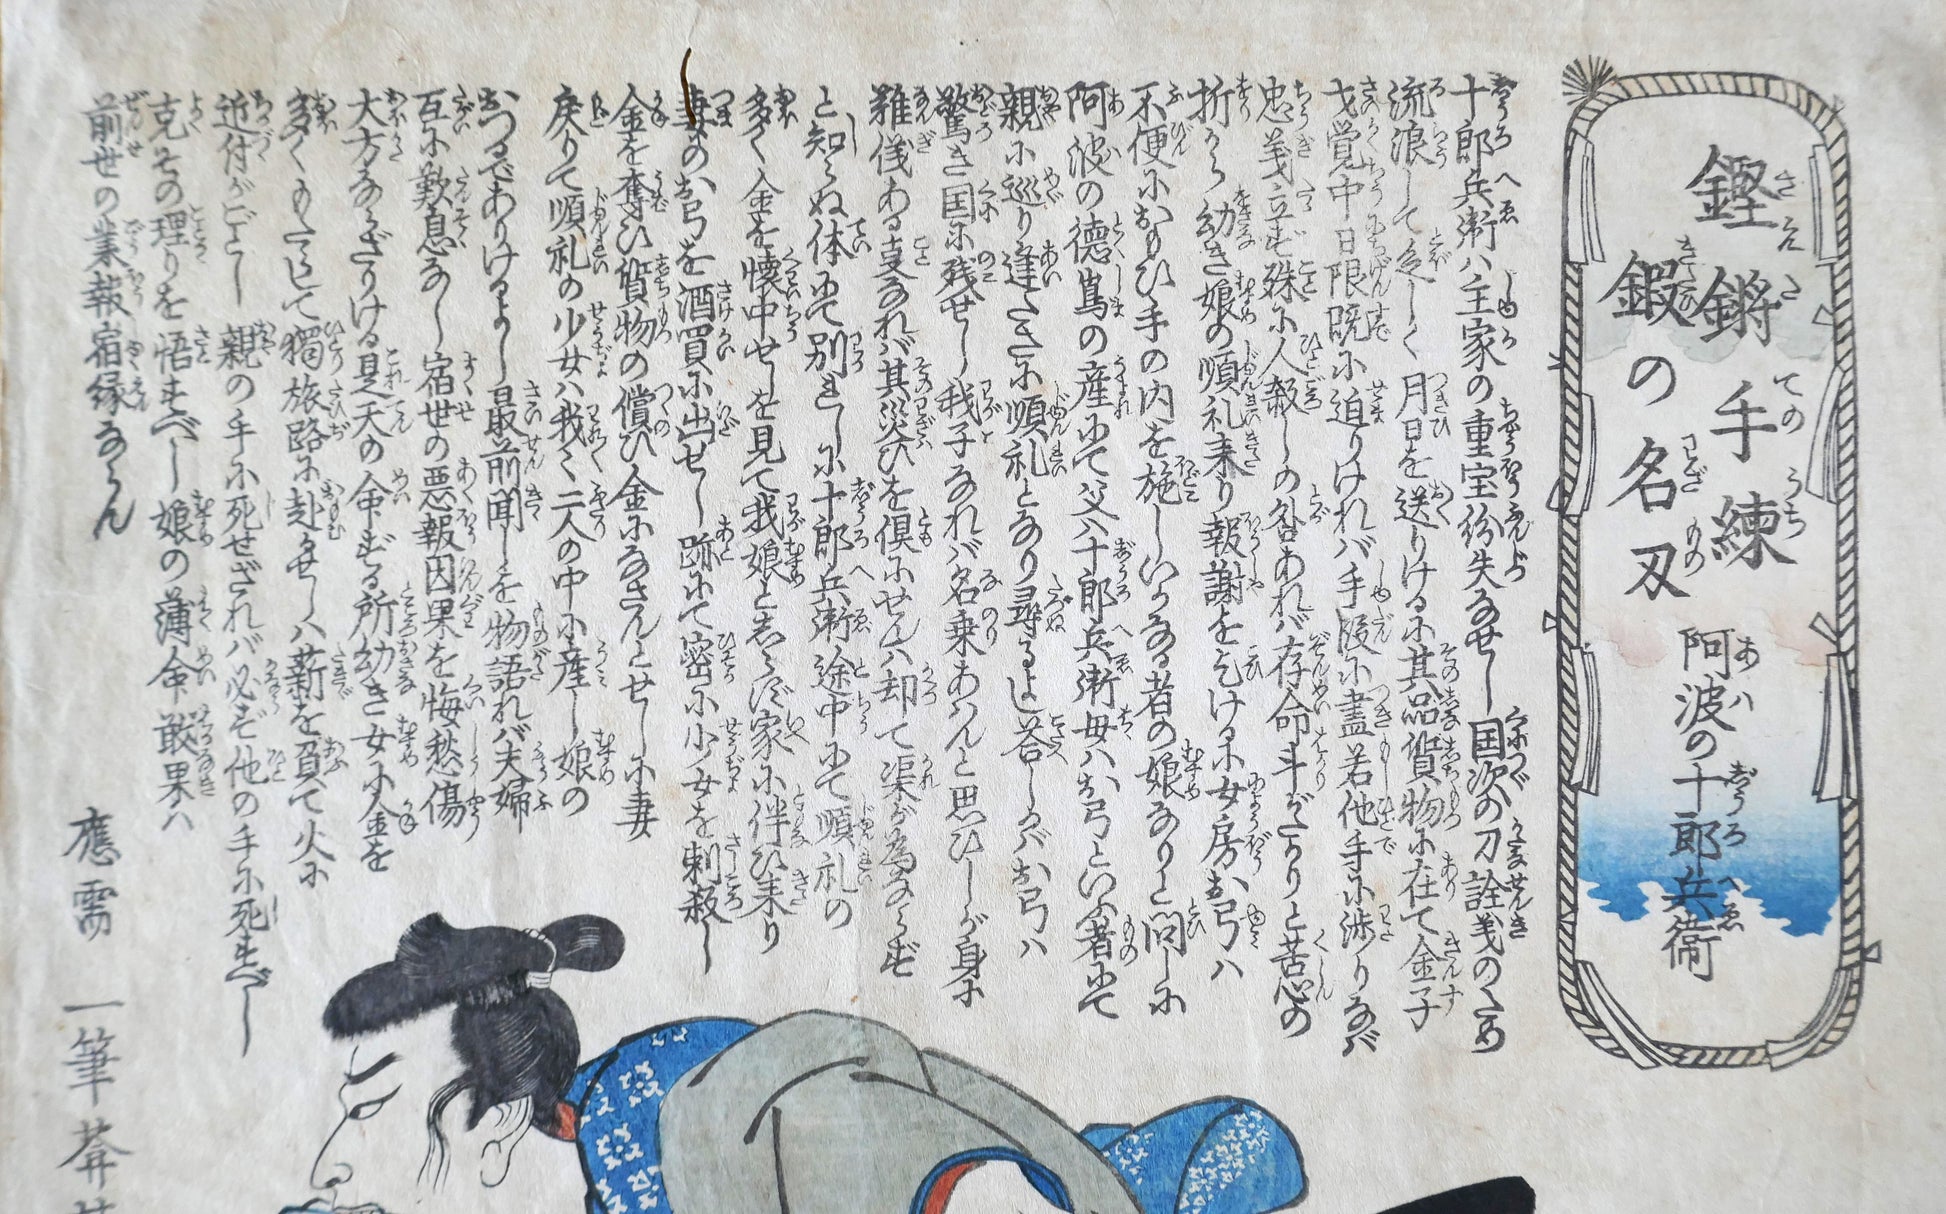 鏗鏘手練
鍜の名刃
阿波の十郎兵衞
十郎兵衛ハ主家の重宝紛失なせし国次の刀詮義のため
流浪して空しく月日を送りけるに其品質物に在て金子
才覚中日限既に迫りけれバ手段に盡若他手に渉りなバ
忠義立ず殊に人殺しの咎あれバ存命斗がたりと苦心の
折から幼き娘の順礼来り報謝を乞けるに女房お弓ハ
不便におもひ手の内を施しいかなる者の娘なりと問しに
阿波の徳嶌の産にて父ハ十郎兵衛母ハお弓といふ者にて
親に巡り逢たさに順礼となり尋るよし答しかバお弓ハ
驚き国に残せし我子なれバ名乗あハんと思ひしが身に
難儀ある事なれバ其災ひを倶にせんハ却て渠が為ならず
と知らぬ体にて別れしに十郎兵衛途中にて順礼の
多く金を懐中せしを見て我娘と志らず家に伴ひ来り
妻のお弓を酒買に出せし跡にて密に少女を刺殺し
金を奪ひ質物の償ひ金になさんとせしに妻
戻りて順礼の少女ハ我々二人の中に産し娘の
おつるでありけるよし最前聞しを物語れバ夫婦
互に歎息なし宿世の悪報因果を悔愁傷
大方ならざりける是天の命ずる所幼き女に金を
多くもたして獨旅路に赴かせしハ薪を負て火に
近付がごとし親の手に死せざれバ必ず他の手に死すべし
克その理りを悟すべし娘の薄命敢果ハ
前世の業報宿縁ならん
應需
一筆菴